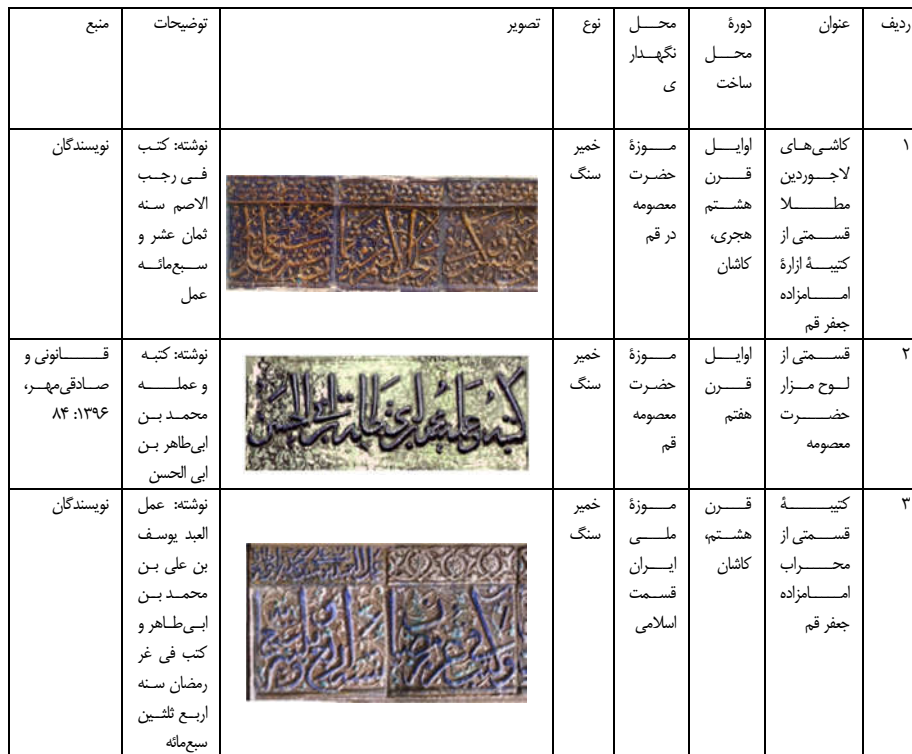 ردیف
عنوان
دورۀ
محل
ساخت
محل
نگهدار
ی
نوع
تصویر
توضیحات
منبع
۱
کاشی‌های
لاجوردین
مطلا
قسمتی از
کتیبۀ ازارۀ
امامزاده
جعفر قم
اوایل
قرن
هشتم
هجری،
کاشان
موزۀ
حضرت
معصومه
در قم
خمیر
سنگ
نوشته: کتب
فی رجب
الاصم سنه
ثمان عشر و
سبع‌مائه
عمل
نویسندگان
۲
قسمتی از
لوح مزار
حضرت
معصومه
اوایل
قرن
هفتم
موزۀ
حضرت
معصومه
قم
خمیر
سنگ
کتبه و عمله محمد بن ابی طاهر بن ابی الحسن
نوشته: کتبه
و عمله
محمد بن
ابی‌طاهر بن
ابی الحسن
قانونی و
صادقی‌مهر،
۱۳۹۶: ۸۴
۳
کتیبۀ
قسمتی از
محراب
امامزاده
جعفر قم
قرن
هشتم،
کاشان
موزۀ
ملی
ایران
قسمت
اسلامی
خمیر
سنگ
نوشته: عمل
العبد یوسف
بن علی بن
محمد بن
ابی‌طاهر و
کتب فی غر
رمضان سنه
اربع ثلثین
سبع‌مائه
نویسندگان